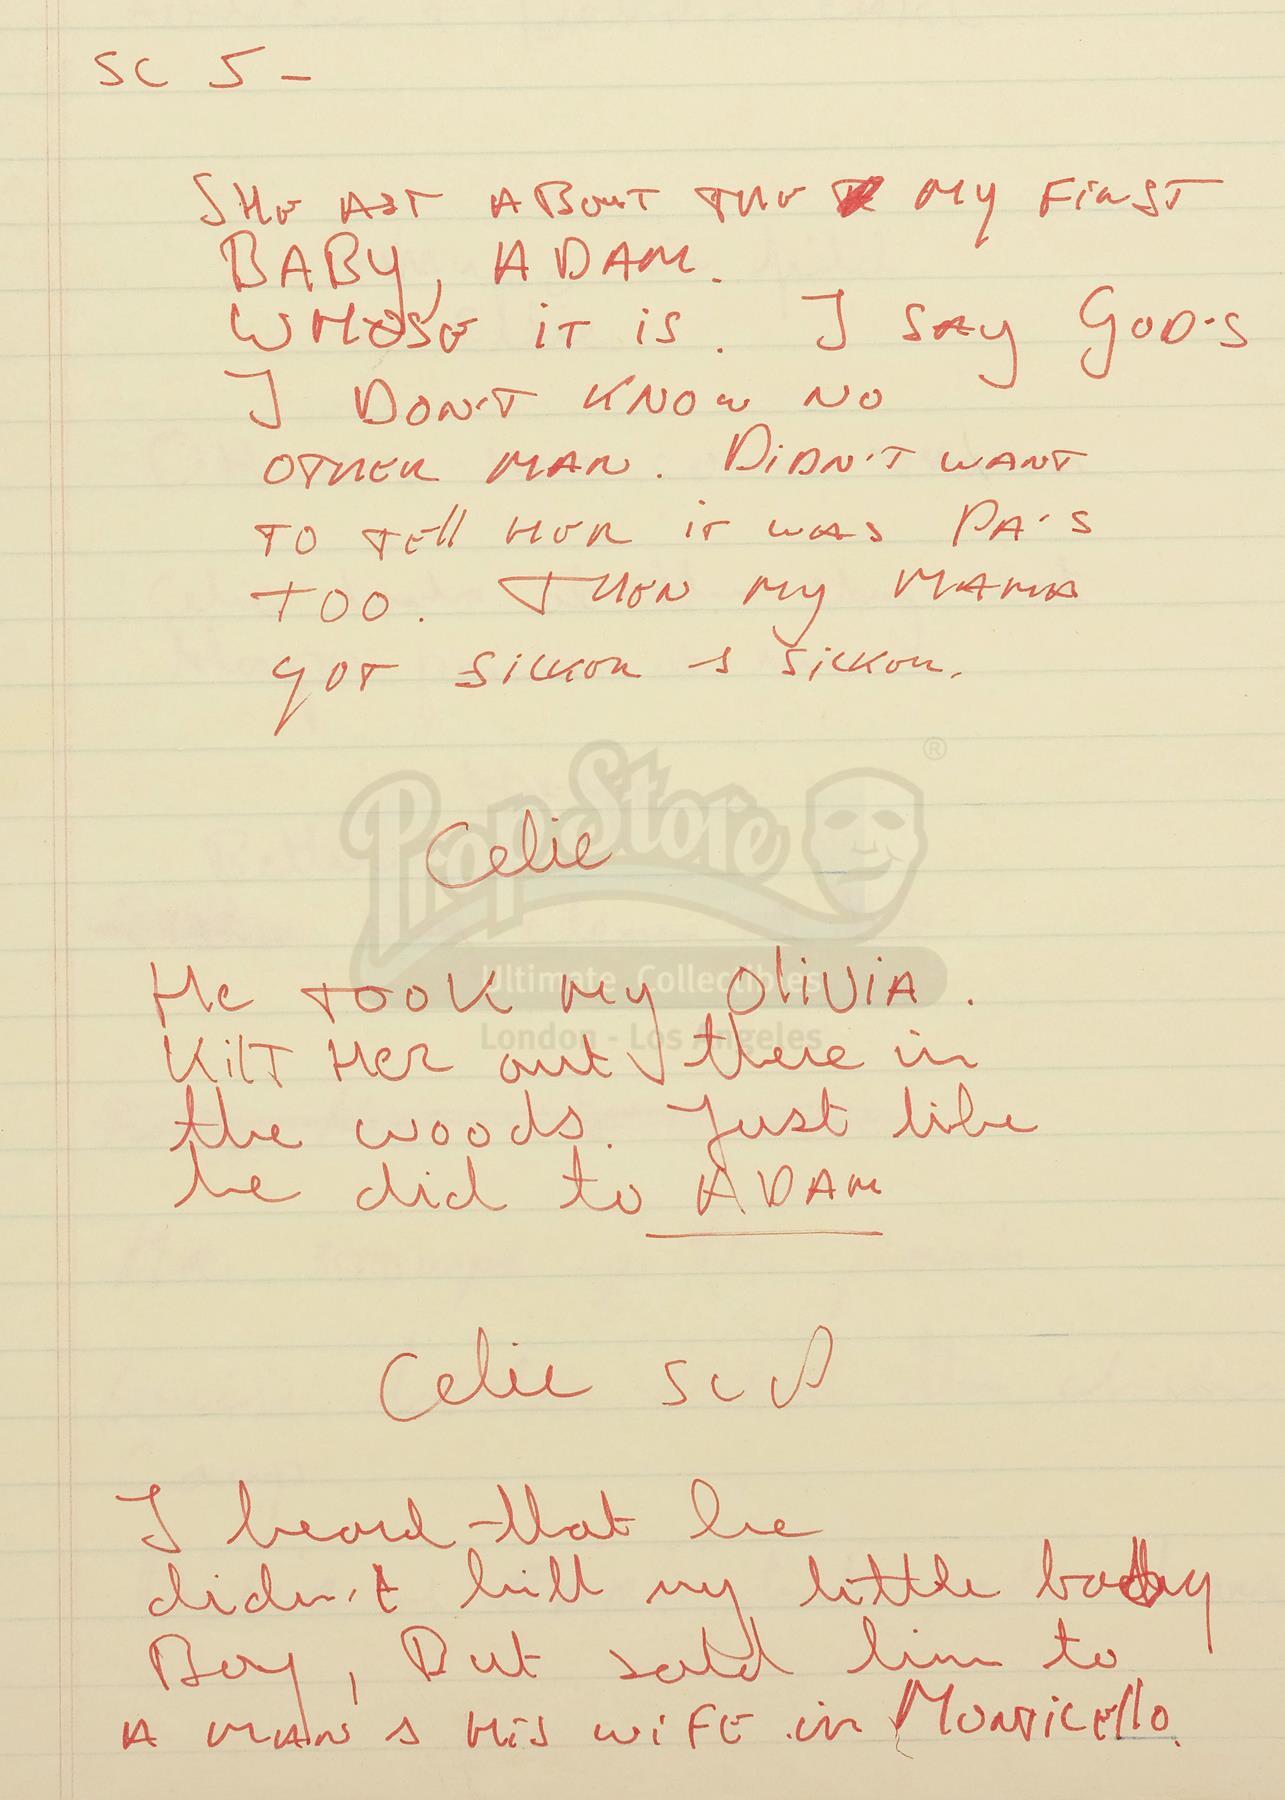 SC 5 -
SHE AST ABOUT THE MY FIRST
BABY, ADAM.
WHOSE IT IS. I SAY GOD'S
I DON'T KNOW NO
OTHER MAN. DIDN'T WANT
TO TEll HER iT WAS PA'S
TOO. THEN MY MAMA
GOT SICKER & SICKER.
®
PropStore
Celie
He TOOK MY OliViA.
Ultimate Collectibles
London - Los Angeles
KilT HER out there in
the woods. Just like
he did to ADAM
Celie SC
I heard that he
didn't kill my little baby
Boy, But sold him to
A MAN & HIS WIFE in Monticello.